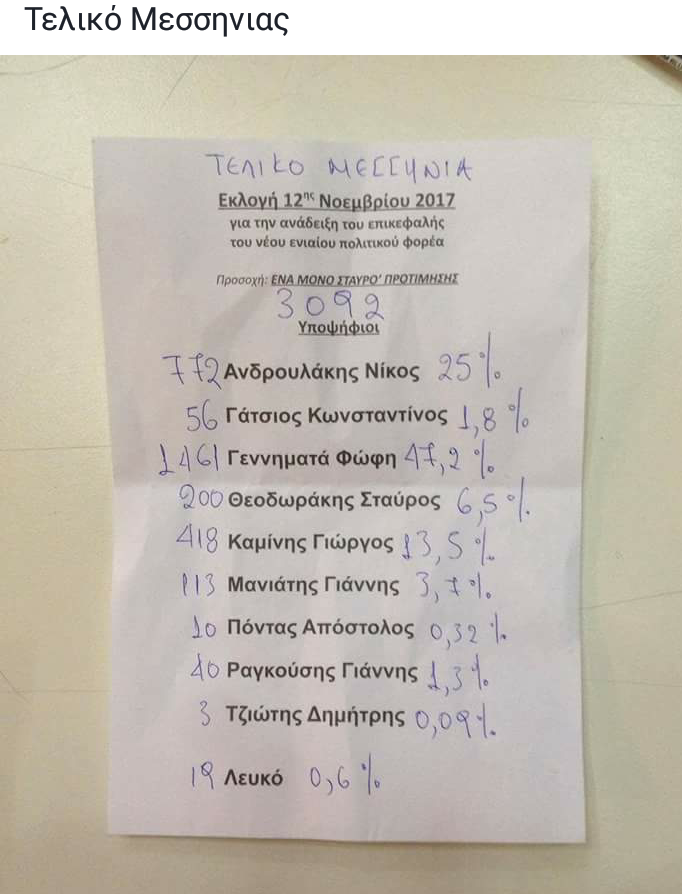 Τελικό Μεσσηνιας
ΤΕΛΙΚΟ ΜΕΣΣΗΝΙΑ
Εκλογή 12ης Νοεμβρίου 2017
για την ανάδειξη του επικεφαλής
του νέου ενιαίου πολιτικού φορέα
Προσοχή: ΕΝΑ ΜΟΝΟ ΣΤΑΥΡΟ' ΠΡΟΤΙΜΗΣΗΣ
3092
Υποψήφιοι
772 Ανδρουλάκης Νίκος 25%
56 Γάτσιος Κωνσταντίνος 1,8%
1461 Γεννηματά Φώφη 47,2%
200 Θεοδωράκης Σταύρος 6,5%
418 Καμίνης Γιώργος 13,5%
113 Μανιάτης Γιάννης 3,7%
10 Πόντας Απόστολος 0,32%
40 Ραγκούσης Γιάννης 1,3%
3 Τζιώτης Δημήτρης 0,09%
19 Λευκό 0,6%